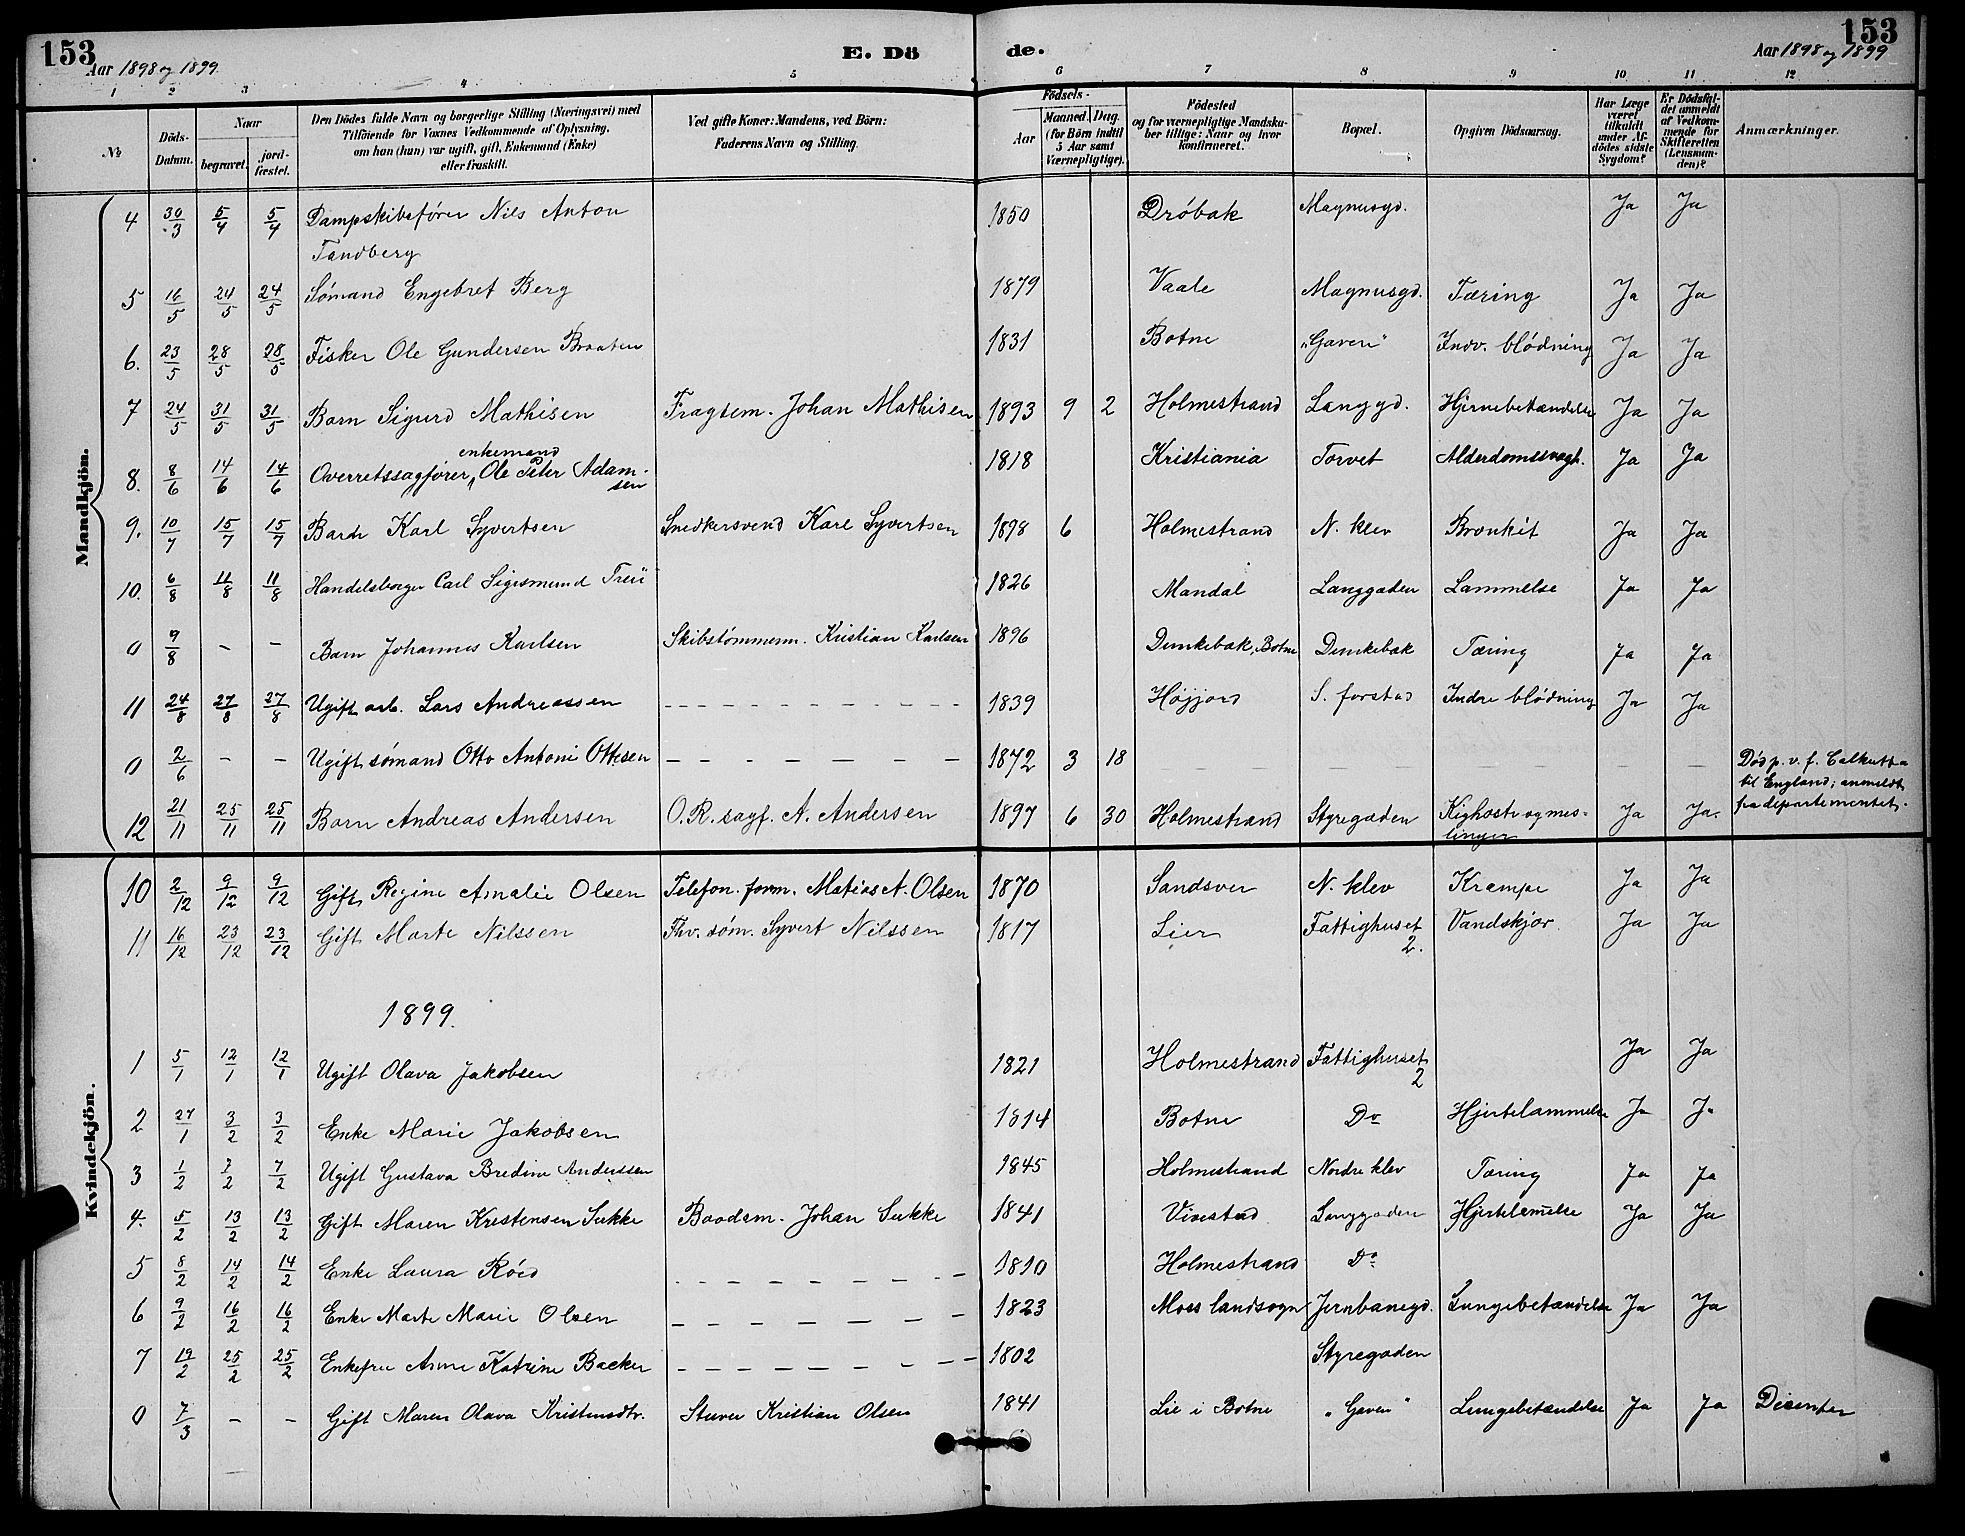 153
Aar 1898 og 1899.
E. Dö
de.
153
Aar 1898 og 1899
1 2 3 4 5 6 7 8 9 10 11 12
№
Döds-Datum.
Naar
begravet.
jord-fæstet.
Den Dödes fulde Navn og borgerlige Stilling (Næringsvei) med
Tilföiende for Voxnes Vedkommende af Oplysning,
om han (hun) var ugift, gift, Enkemand (Enke)
eller fraskilt.
Ved gifte Koner: Mandens, ved Börn:
Faderens Navn og Stilling.
Födsels-
Aar
Maaned. Dag.
(for Börn indtil
5 Aar samt
Værnepligtige).
Födested
og for værnepligtige Mandska-
ber tillige: Naar og hvor
konfirmeret.
Bopæl.
Opgiven Dödsaarsag.
Har Læge
været
tilkaldt
under Af-
dödes sidste
Sygdom?
Er Dödsfal-
det anmeldt
af Vedkom-
mende for
Skifteretten
(Lensman-
den)?
Anmærkninger.
Mandkjön.
4 30/3 5/4 5/4 Dampskibsfører Nils Anton 1850 Drøbak Magnusgd. Ja Ja
Tandberg
5 16/5 24/5 24/5 Sømand Engebret Berg 1879 Vaale Magnusgd. Tæring Ja Ja
6. 23/5 28/5 28/5 Fisker Ole Gundersen Braaten 1831 Botne "Gaven" Indv. blødning Ja Ja
7 24/5 31/5 31/5 Barn Sigurd Mathisen Fragtem. Johan Mathisen 1893 9 2 Holmestrand Langgd. Hjernebetændelse Ja Ja
enkemand
8. 8/6 14/6 14/6 Overretssagfører, Ole Peter Adam- 1818 Kristiania Torvet Alderdomssvagh. Ja Ja
sen
9. 10/7 15/7 15/7 Barn Karl Syvertsen Snedkersvend Karl Syvertsen 1898 6 Holmestrand N. klev Bronkit Ja Ja
10. 6/8 11/8 11/8 Handelsborger Carl Sigismund Treü 1826 Mandal Langgaden Lammelse Ja Ja
0 9/8 - - Barn Johannes Karlsen Skibstømmerm. Kristian Karlsen 1896 Dunkebæk, Botne Dunkebæk Tæring Ja Ja
11 24/8 27/8 27/8 Ugift arb. Lars Andreassen - - - - 1839 Høijord S. forstad Indre blødning Ja Ja
0 2/6 - - Ugift sømand Otto Antoni Ottesen - - - - 1872 3 18 - - - - - Død p. v. f. Calkutta
til England; anmeldt
fra departementet.
12 21/11 25/11 25/11 Barn Andreas Andersen O.R. sagf. A. Andersen 1897 6 30 Holmestrand Styregaden Kighoste og mes- Ja Ja.
linger
Kvindekjön.
10 2/12 9/12 9/12 Gift Regine Amalie Olsen Telefon. form. Matias A. Olsen 1870 Sandsver N. klev Krampe Ja Ja
11 16/12 23/12 23/12 Gift Marte Nilssen Fhv. søm. Syvert Nilssen 1817 Lier Fattighuset Vandskjør. Ja Ja
2.
1899.
1 5/1 12/1 12/1 Ugift Olava Jakobsen 1821 Holmestrand Fattighuset Ja Ja
2
2 27/1 3/2 3/2 Enke Marie Jakobsen 1814 Botne Do Hjertelammelse Ja Ja
3 1/2 7/2 7/2 Ugift Gustava Bredine Anderssen 1845 Holmestrand Nordre klev Tæring Ja Ja
4. 5/2 13/2 13/2 Gift Maren Kristensen Sukke Baadsm. Johan Sukke 1841 Vivestad Langgaden Hjertelam̄else Ja Ja
5 8/2 14/2 14/2 Enke Laura Röed - - - - 1810 Holmestrand Do
6 9/2 16/2 16/2 Enke Marte Marie Olsen - - - - 1823 Moss landsogn Jernbanegd. Lungebetændelse Ja Ja
7 19/2 25/2 25/2 Enkefru Anne Katrine Backer - - - - 1802 Styregaden
0 7/3 - - Gift Maren Olava Kristensdtr. Stuver Kristian Olsen 1841 Lie i Botne "Gaven" Lungebetændelse Ja Ja Disenter